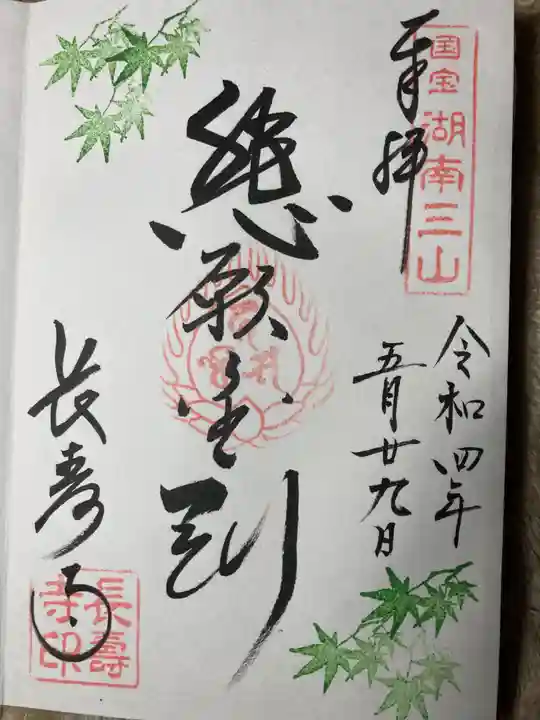 国宝 湖南三山
奉拝
令和四年
五月廿九日
悲願金剛
長寿寺
長壽
寺印